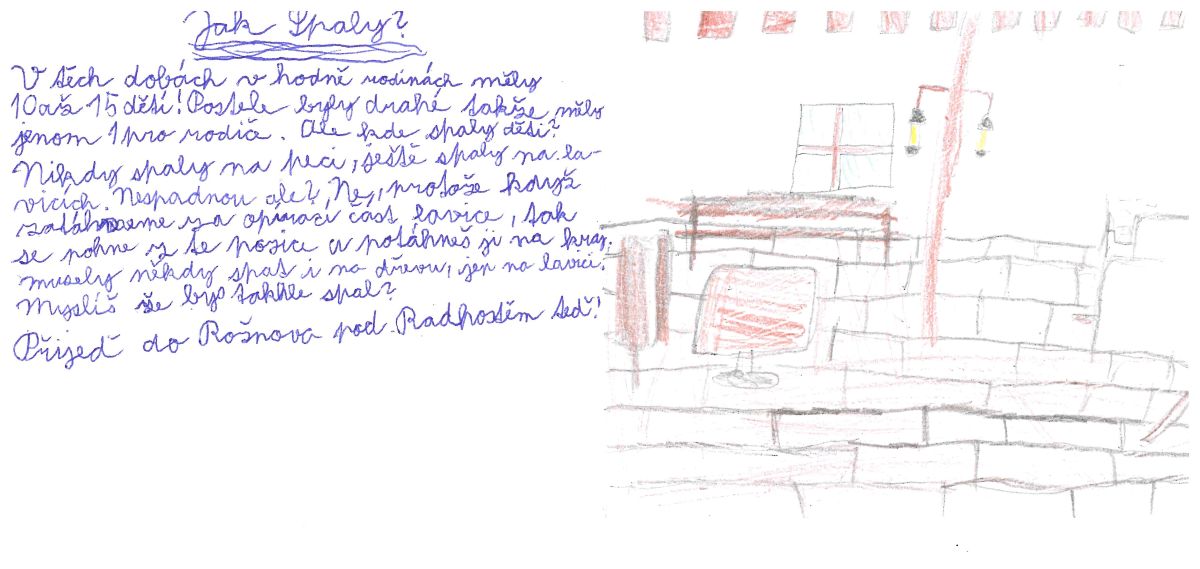 Jak Spaly?
V těch dobách v hodně rodinách měly
10 až 15 dětí! Postele byly drahé takže měly
jenom 1 pro rodiče. Ale kde spaly děti?
Nikdy spaly na peci, ještě spaly na la-
vicích. Nespadnou ale? Ne, protože když
zatáhneme za opírací část lavice, tak
se pohne z té pozice a potáhneš ji na kraj.
musely někdy spat i na dřevu, jen na lavici.
Myslíš že bys takhle spal?
Přijeď do Rožnova pod Radhoštěm teď!